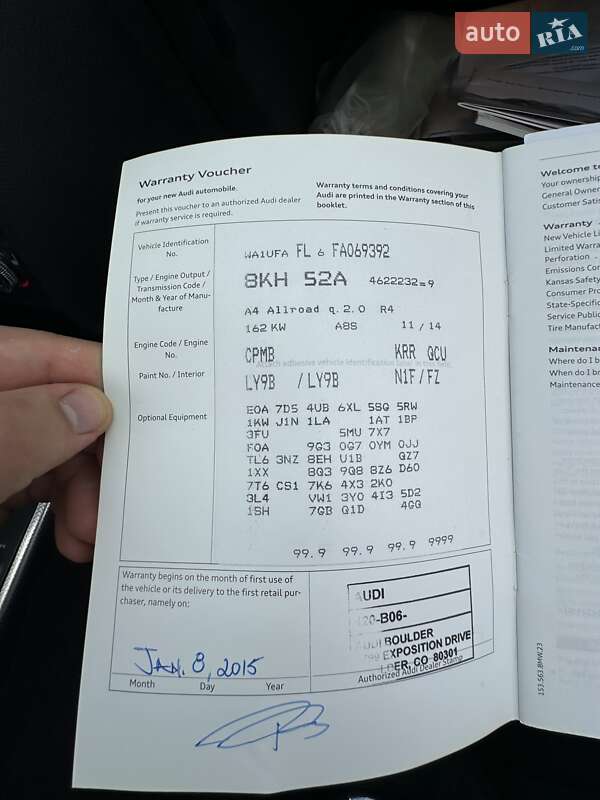 auto RIA .com
Warranty Voucher
for your new Audi automobile.
Present this voucher to an authorized Audi dealer
if warranty service is required.
Warranty terms and conditions covering your
Audi are printed in the Warranty section of this
booklet.
Vehicle Identification
No.
WA1UFA FL 6 FA069392
Type / Engine Output /
Transmission Code /
Month & Year of Manu-
facture
8KH 52A 4622232=9
A4 Allroad q.2.0 R4
162 KW A8S 11/14
Engine Code / Engine
No.
CPMB KRR QCU
Paint No. / Interior
LY9B /LY9B N1F/FZ
Optional Equipment
E0A 7D5 4UB 6XL 5SG 5RW
1KW J1N 1LA 1AT 1BP
3FU 5MU 7X7
F0A 9G3 0G7 0YM 0JJ
TL6 3NZ 8EH U1B GZ7
1XX 8Q3 9Q8 8Z6 D60
7T6 CS1 7K6 4X3 2K0
3L4 VW1 3Y0 4I3 5D2
1SH 7GB Q1D 4GQ
99.9 99.9 99.9 9999
Warranty begins on the month of first use of
the vehicle or its delivery to the first retail pur-
chaser, namely on:
JAN. 8, 2015
Month Day Year
AUDI
20-B06-
AUDI BOULDER
EXPOSITION DRIVE
CO 80301
Authorized Audi Dealer Stamp
153.563.BMW.23
Welcome to
Your ownership
General Owner
Customer Satis
Warranty
New Vehicle Li
Limited Warran
Perforation
Emissions Con
Kansas Safety
Consumer Pro
State-Specific
Service Public
Tire Manufact
Maintenan
How do I br
When do I b
Maintenance